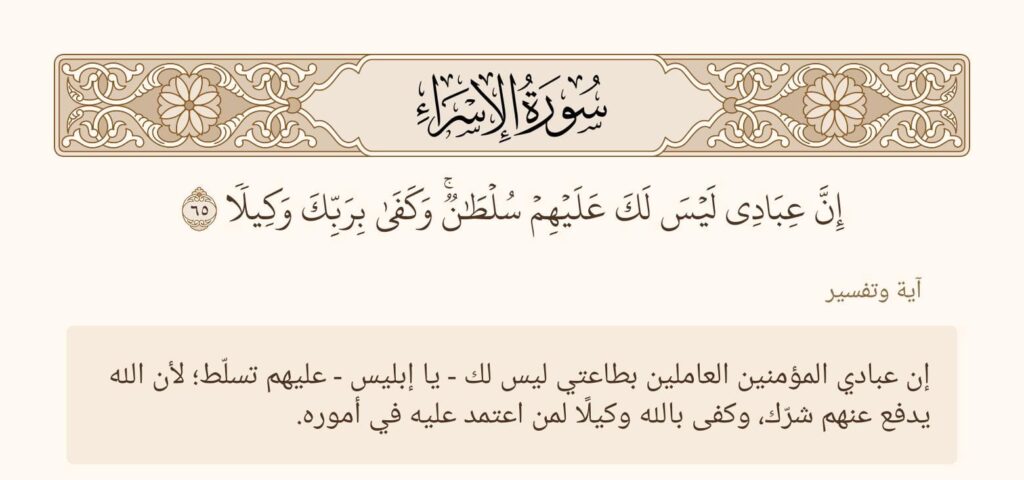 سُورَةُ الإِسْرَاءِ
إِنَّ عِبَادِي لَيْسَ لَكَ عَلَيْهِمْ سُلْطَٰنٌۚ وَكَفَىٰ بِرَبِّكَ وَكِيلًا ٦٥
آية وتفسير
إن عبادي المؤمنين العاملين بطاعتي ليس لك - يا إبليس - عليهم تسلّط؛ لأن الله
يدفع عنهم شرّك، وكفى بالله وكيلًا لمن اعتمد عليه في أموره.